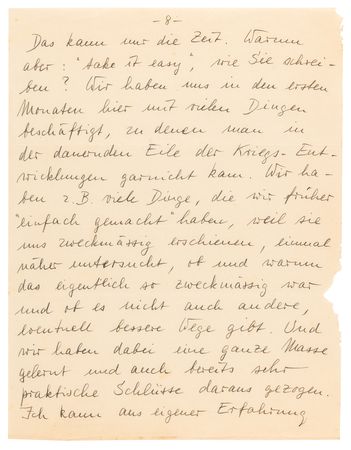 - 8 -
Das kann nur die Zeit. Warum
aber: "take it easy", wie Sie schrei-
ben? Wir haben uns in den ersten
Monaten hier mit vielen Dingen
beschäftigt, zu denen man in
der dauernden Eile der Kriegs-Ent-
wicklungen garnicht kam. Wir ha-
ben z.B. viele Dinge, die wir früher
"einfach gemacht" haben, weil sie
uns zweckmässig erschienen, einmal
näher untersucht, ob und warum
das eigentlich so zweckmässig war
und ob es nicht auch andere,
eventuell bessere Wege gibt. Und
wir haben dabei eine ganze Masse
gelernt und auch bereits sehr
praktische Schlüsse daraus gezogen.
Ich kann aus eigener Erfahrung